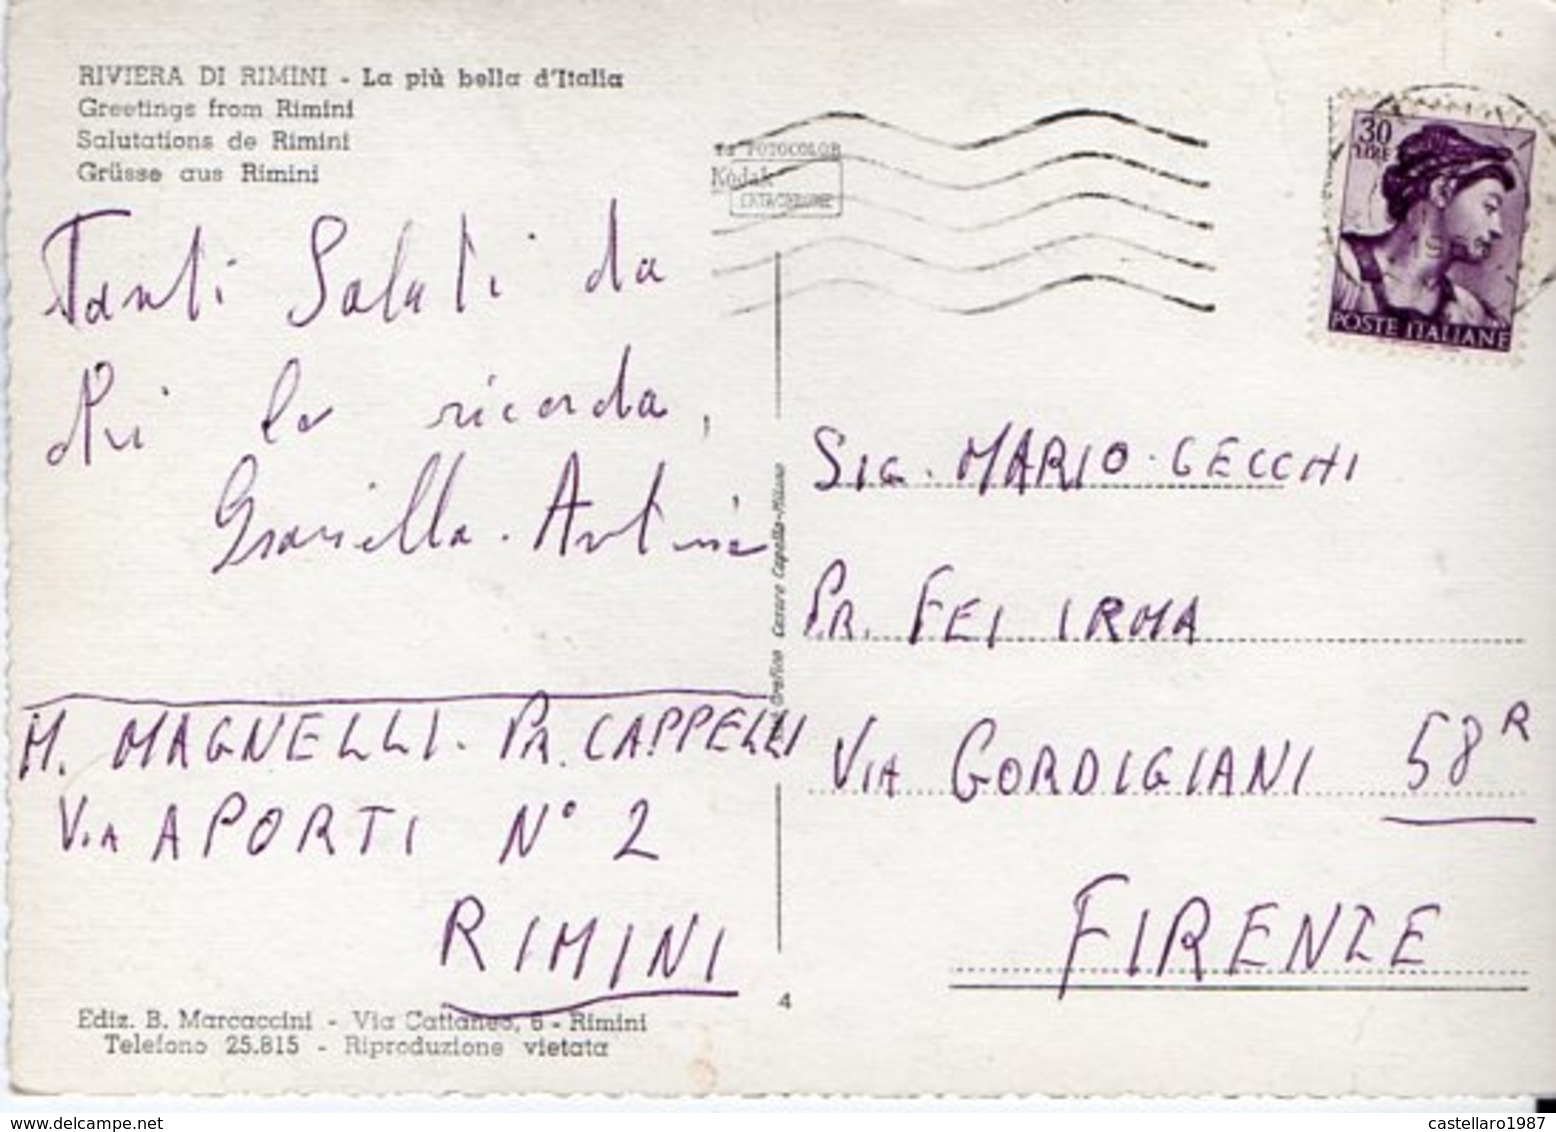 RIVIERA DI RIMINI - La più bella d'Italia
Greetings from Rimini
Salutations de Rimini
Grüsse aus Rimini
FOTOCOLOR
Kodak
30
LIRE
POSTE ITALIANE
Tanti Saluti da
chi la ricorda,
Graziella.
SIG. MARIO CECCHI
PR. FEI IRMA
VIA GORDIGIANI 58 R
FIRENZE
M. MAGNELLI. PR. CAPPELLI
VIA APORTI N° 2
RIMINI
Cesare Capello-Milano
Ediz. B. Marcaccini - Via Cattaneo, 6 - Rimini
Telefono 25.815 - Riproduzione vietata
4
castellaro1987